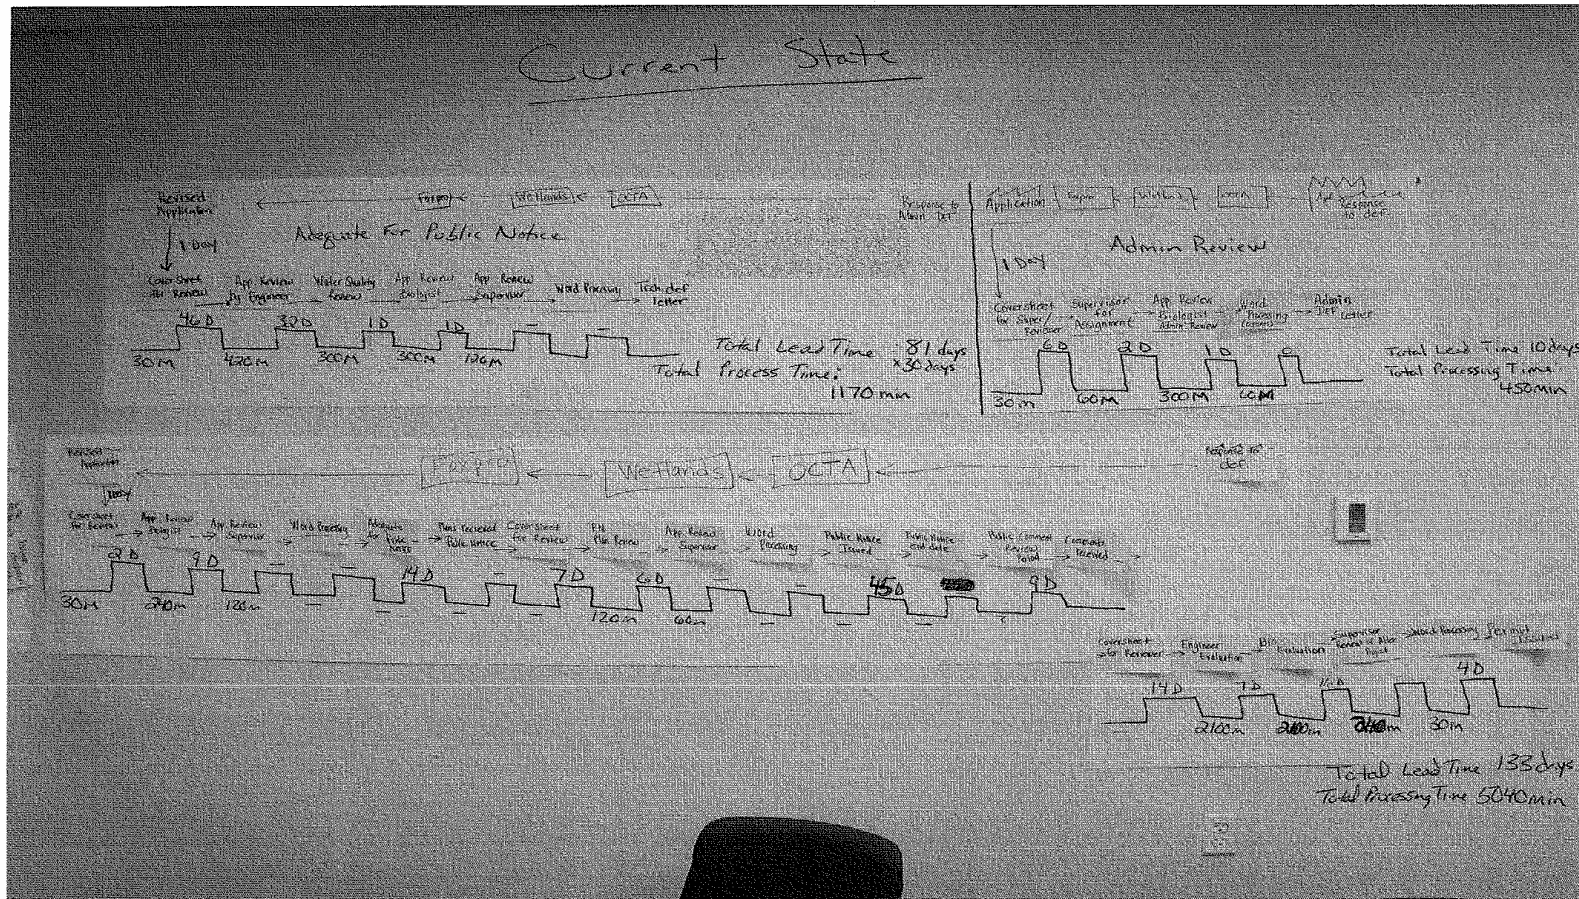 Current State
Revised Application
Foxpro
Wetlands
OCTA
Response to Admin Def
1 Day
Adequate For Public Notice
Coversheet
Review
App. Review By Engineer
Water Quality Review
App Review Biologist
App Review Supervisor
Word Processing
Tech. def letter
46 D
32 D
1 D
1 D
—
—
30 M
420 M
300 M
300 M
120 M
Total Lead Time 81 days
x 30 days
Total Process Time:
1170 min
Application
Response to def.
Admin Review
1 Day
Coversheet for Super/ Reviewer
Supervisor for Assignment
App. Review Biologist Admin Review
Word Processing
Admin Def Letter
6 D
2 D
1 D
0
30 m
60 m
300 M
60 M
Total Lead Time 10 days
Total Processing Time
450 min
Revised Application
Foxpro
Wetlands
OCTA
Response to def
1 Day
Coversheet for Review
App. Review Biologist
App. Review Supervisor
Word Processing
Adequate for Public Notice
Plans Received Public Notice
Coversheet for Review
P.N. Plan Review
App. Review Supervisor
Word Processing
Public Notice Issued
Public Notice end date
Public Comment Review Period
Comments received
2 D
9 D
—
—
14 D
—
7 D
6 D
—
—
45 D
9 D
30 M
240 m
120 m
—
—
—
—
120 m
60 m
—
—
—
Coversheet for Reviewer
Engineer Evaluation
Evaluation
Supervisor
Word Processing
Permit
14 D
7 D
4 D
2100 m
30 m
Total Lead Time 133 days
Total Processing Time 5040 min